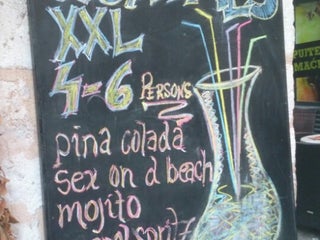 XXL
4-6 PERSONS
pina colada
sex on d beach
mojito
spritz
PUITE
MAC